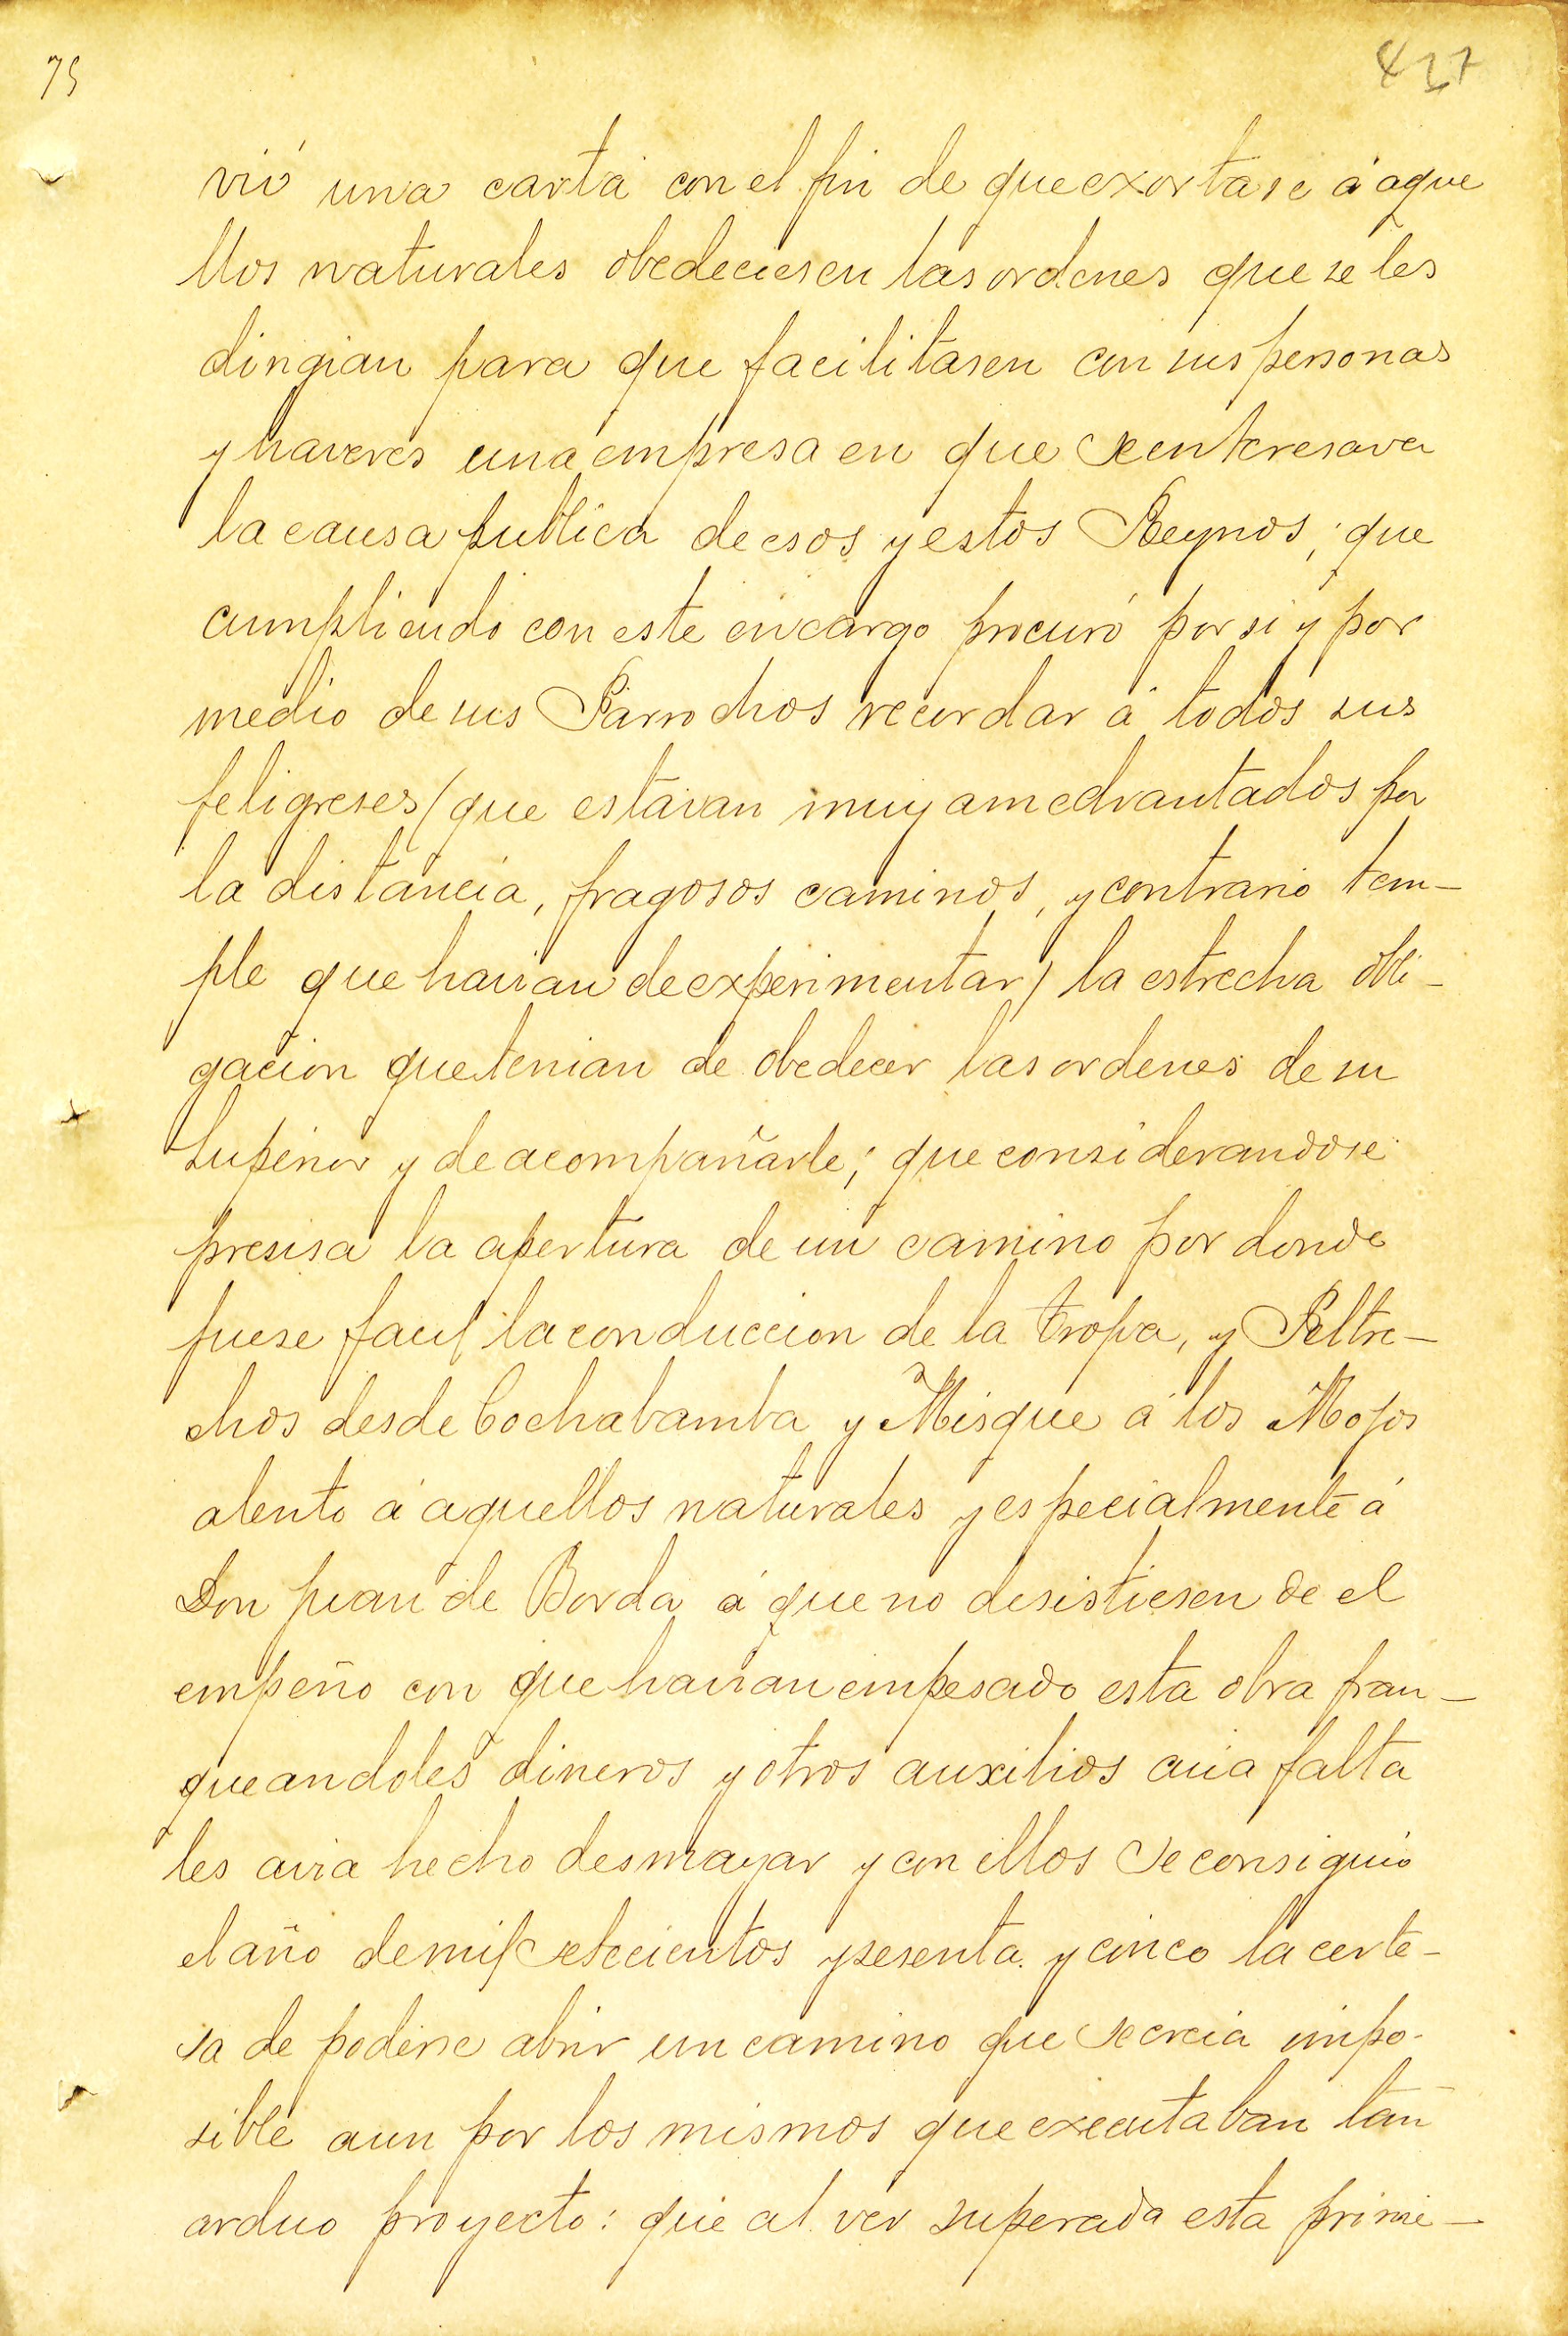 75
437
vió una carta con el fin de que exortase á aque
llos naturales obedeciesen las ordenes que se les
dirigian para que facilitasen con sus personas
y haveres una empresa en que se enteresava
la causa publica de esos y estos Reynos; que
cumpliendo con este encargo procuró por si y por
medio de sus Parrochos recordar á todos sus
feligreses (que estavan muy amedrantados por
la distancia, fragosos caminos, y contrario tem-
ple que havian de experimentar) la estrecha obli-
gacion que tenian de obedecer las ordenes de su
Superior y de acompañarle; que considerandose
presisa la apertura de un camino por donde
fuese facil la conduccion de la tropa, y Peltre-
chos desde Cochabamba y Misque á los Mojos
alento á aquellos naturales y especialmente á
Don Juan de Borda á que no desistiesen de el
empeño con que havian empesado esta obra fran-
queandoles dineros y otros auxilios cuia falta
les avia hecho desmayar y con ellos se consiguio
el año de mil setecientos y sesenta y cinco la certe-
sa de poderse abrir un camino que se creia impo-
sible aun por los mismos que executaban tan
arduo proyecto: que al ver superada esta prime-